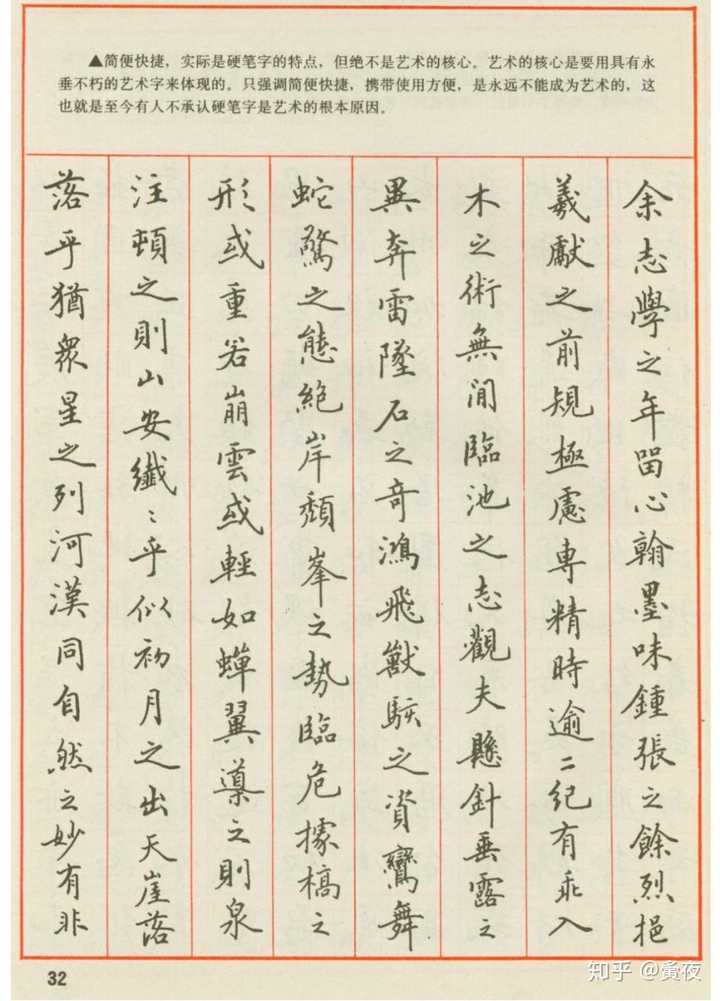 ▲简便快捷，实际是硬笔字的特点，但绝不是艺术的核心。艺术的核心是要用具有永
垂不朽的艺术字来体现的。只强调简便快捷，携带使用方便，是永远不能成为艺术的，这
也就是至今有人不承认硬笔字是艺术的根本原因。
余志學之年畱心翰墨味鍾張之餘烈挹
羲獻之前規極慮專精時逾二紀有乖入
木之術無間臨池之志觀夫懸針垂露之
異奔雷墜石之奇鴻飛獸駭之資鸞舞
蛇驚之態絕岸頹峯之勢臨危據槁之
形或重若崩雲或輕如蟬翼導之則泉
注頓之則山安纖〻乎似初月之出天崖落
落乎猶衆星之列河漢同自然之妙有非
32
知乎 @夤夜